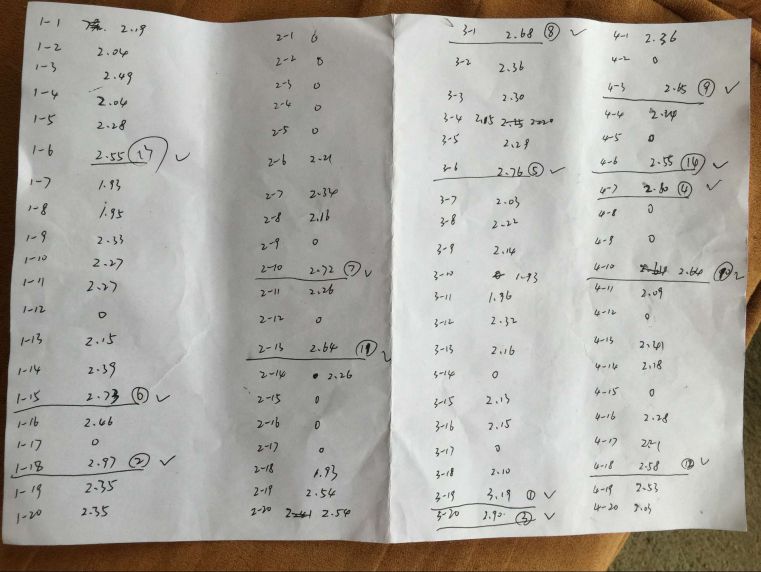 1-1 2.19
1-2 2.04
1-3 2.49
1-4 2.04
1-5 2.28
1-6 2.55 ✓
1-7 1.93
1-8 1.95
1-9 2.33
1-10 2.27
1-11 2.27
1-12 0
1-13 2.15
1-14 2.39
1-15 2.73 ⑥ ✓
1-16 2.46
1-17 0
1-18 2.97 ② ✓
1-19 2.35
1-20 2.35
2-1 0
2-2 0
2-3 0
2-4 0
2-5 0
2-6 2.21
2-7 2.34
2-8 2.16
2-9 0
2-10 2.72 ⑦ ✓
2-11 2.26
2-12 0
2-13 2.64 ⑪ ✓
2-14 2.26
2-15 0
2-16 0
2-17 0
2-18 1.93
2-19 2.54
2-20 2.54
3-1 2.68 ⑧ ✓
3-2 2.36
3-3 2.30
3-4 2.15
3-5 2.29
3-6 2.76 ⑤ ✓
3-7 2.03
3-8 2.22
3-9 2.14
3-10 1.93
3-11 1.96
3-12 2.32
3-13 2.16
3-14 0
3-15 2.13
3-16 2.15
3-17 0
3-18 2.10
3-19 3.19 ① ✓
3-20 2.90 ③ ✓
4-1 2.36
4-2 0
4-3 2.65 ⑨ ✓
4-4 2.24
4-5 0
4-6 2.55 ⑭ ✓
4-7 2.80 ④ ✓
4-8 0
4-9 0
4-10 2.64 ⑩ ✓
4-11 2.09
4-12 0
4-13 2.41
4-14 2.18
4-15 0
4-16 2.28
4-17 2.21
4-18 2.58 ⑫ ✓
4-19 2.53
4-20 2.03